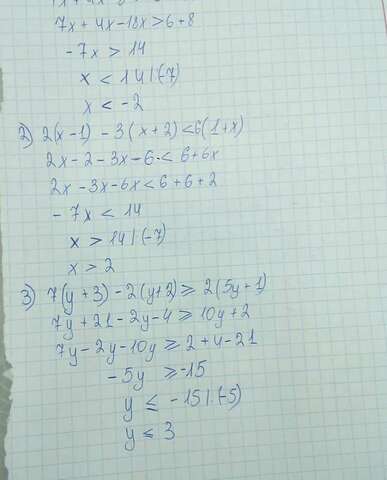 7x + 4x - 18x > 6 + 8
- 7x > 14
x < 14 : (-7)
x < - 2
2) 2(x - 1) - 3(x + 2) < 6(1 + x)
2x - 2 - 3x - 6 < 6 + 6x
2x - 3x - 6x < 6 + 6 + 2
- 7x < 14
x > 14 : (-7)
x > 2
3) 7(y + 3) - 2(y + 2) ≥ 2(5y + 1)
7y + 21 - 2y - 4 ≥ 10y + 2
7y - 2y - 10y ≥ 2 + 4 - 21
- 5y ≥ -15
y ≤ - 15 : (-5)
y ≤ 3